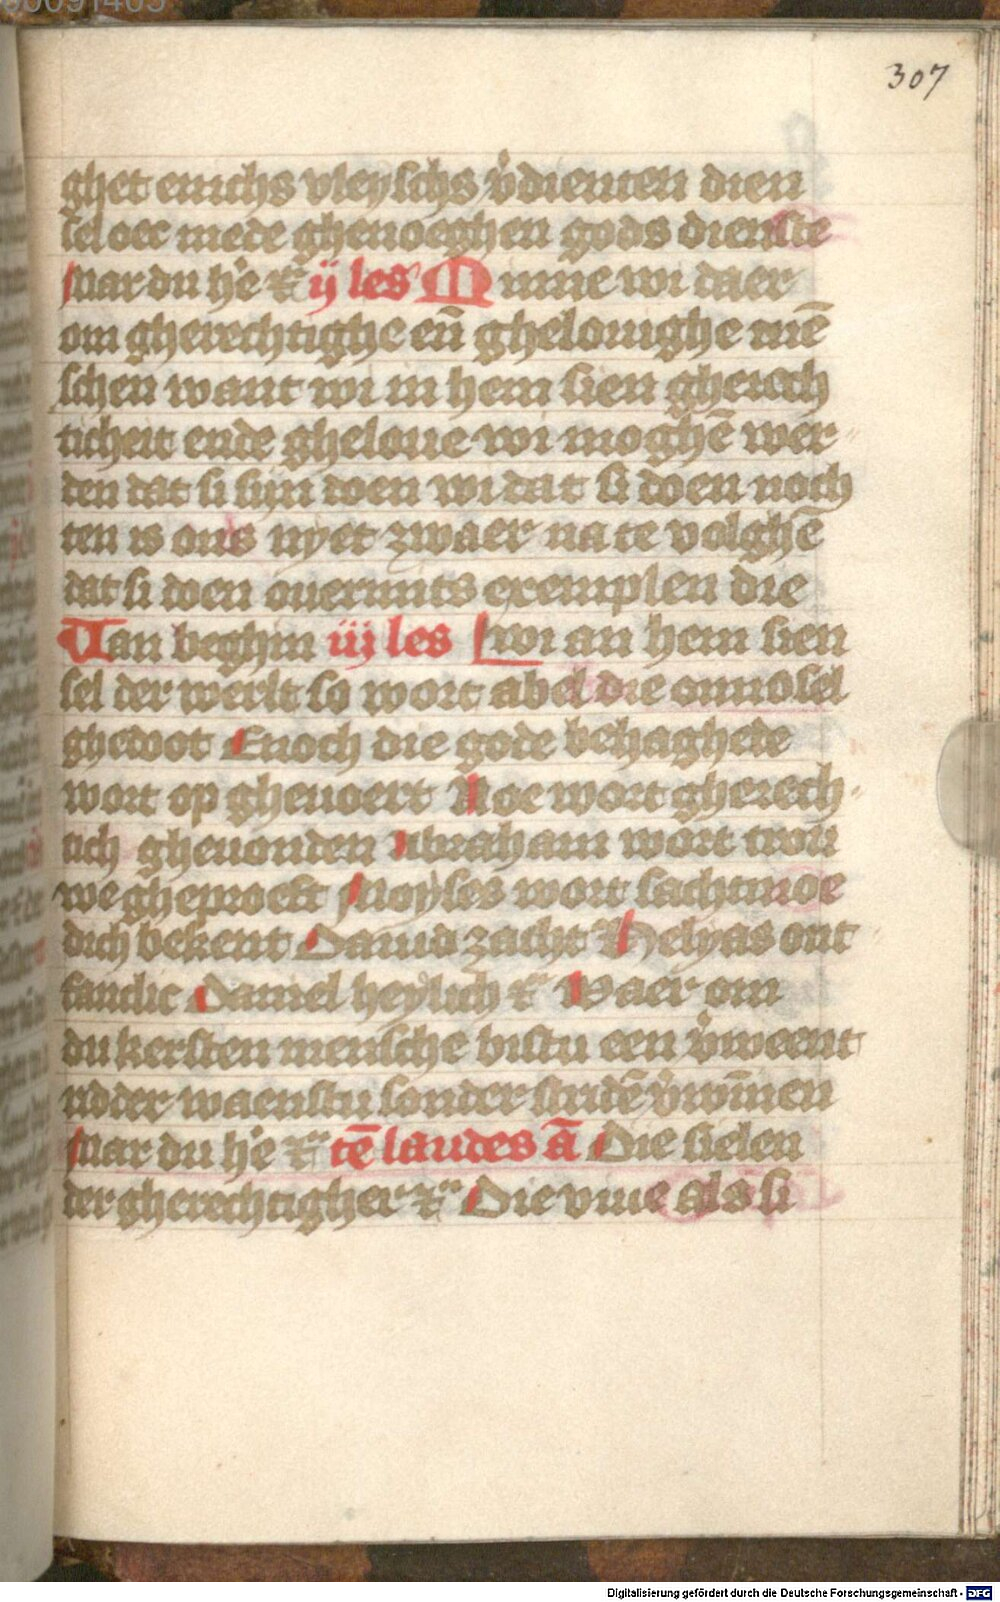 00091403
307
ghet enichs vleyschs v̉dienten dien
sel oec mede ghenoeghen gods dienste
Mar du he ꝛc ij les Minne wi daer
om gherechtighe eñ ghelouighe mē
schen want wi in hem sien gherech
ticheit ende gheloue wi moghē wer
den dat si sijn doen wi dat si doen noch
ten is ons nyet zwaer na te volghē
dat si doen ouermits exemplen die
Van beghin iij les wi an hem sien
sel der werlt so wort abel die onnosel
ghedoot Enoch die gode behaghede
wort op gheuoert Noe wort gherech
tich gheuonden Abraham wort trou
we gheproeft Moyses wort sachtmoe
dich bekent Dauid zacht Helyas ont
fanclic Daniel heylich ꝛc Waer om
du kersten mensche bistu een v̉weent
ridder waenstu sonder stridē v̉wīnen
Mar du he ꝛc tē laudes ā Die sielen
der gherechtigher ꝛc Die viue als si
Digitalisierung gefördert durch die Deutsche Forschungsgemeinschaft - DFG